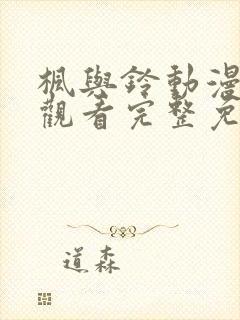 楓與鈴動漫
觀看完整免
道森